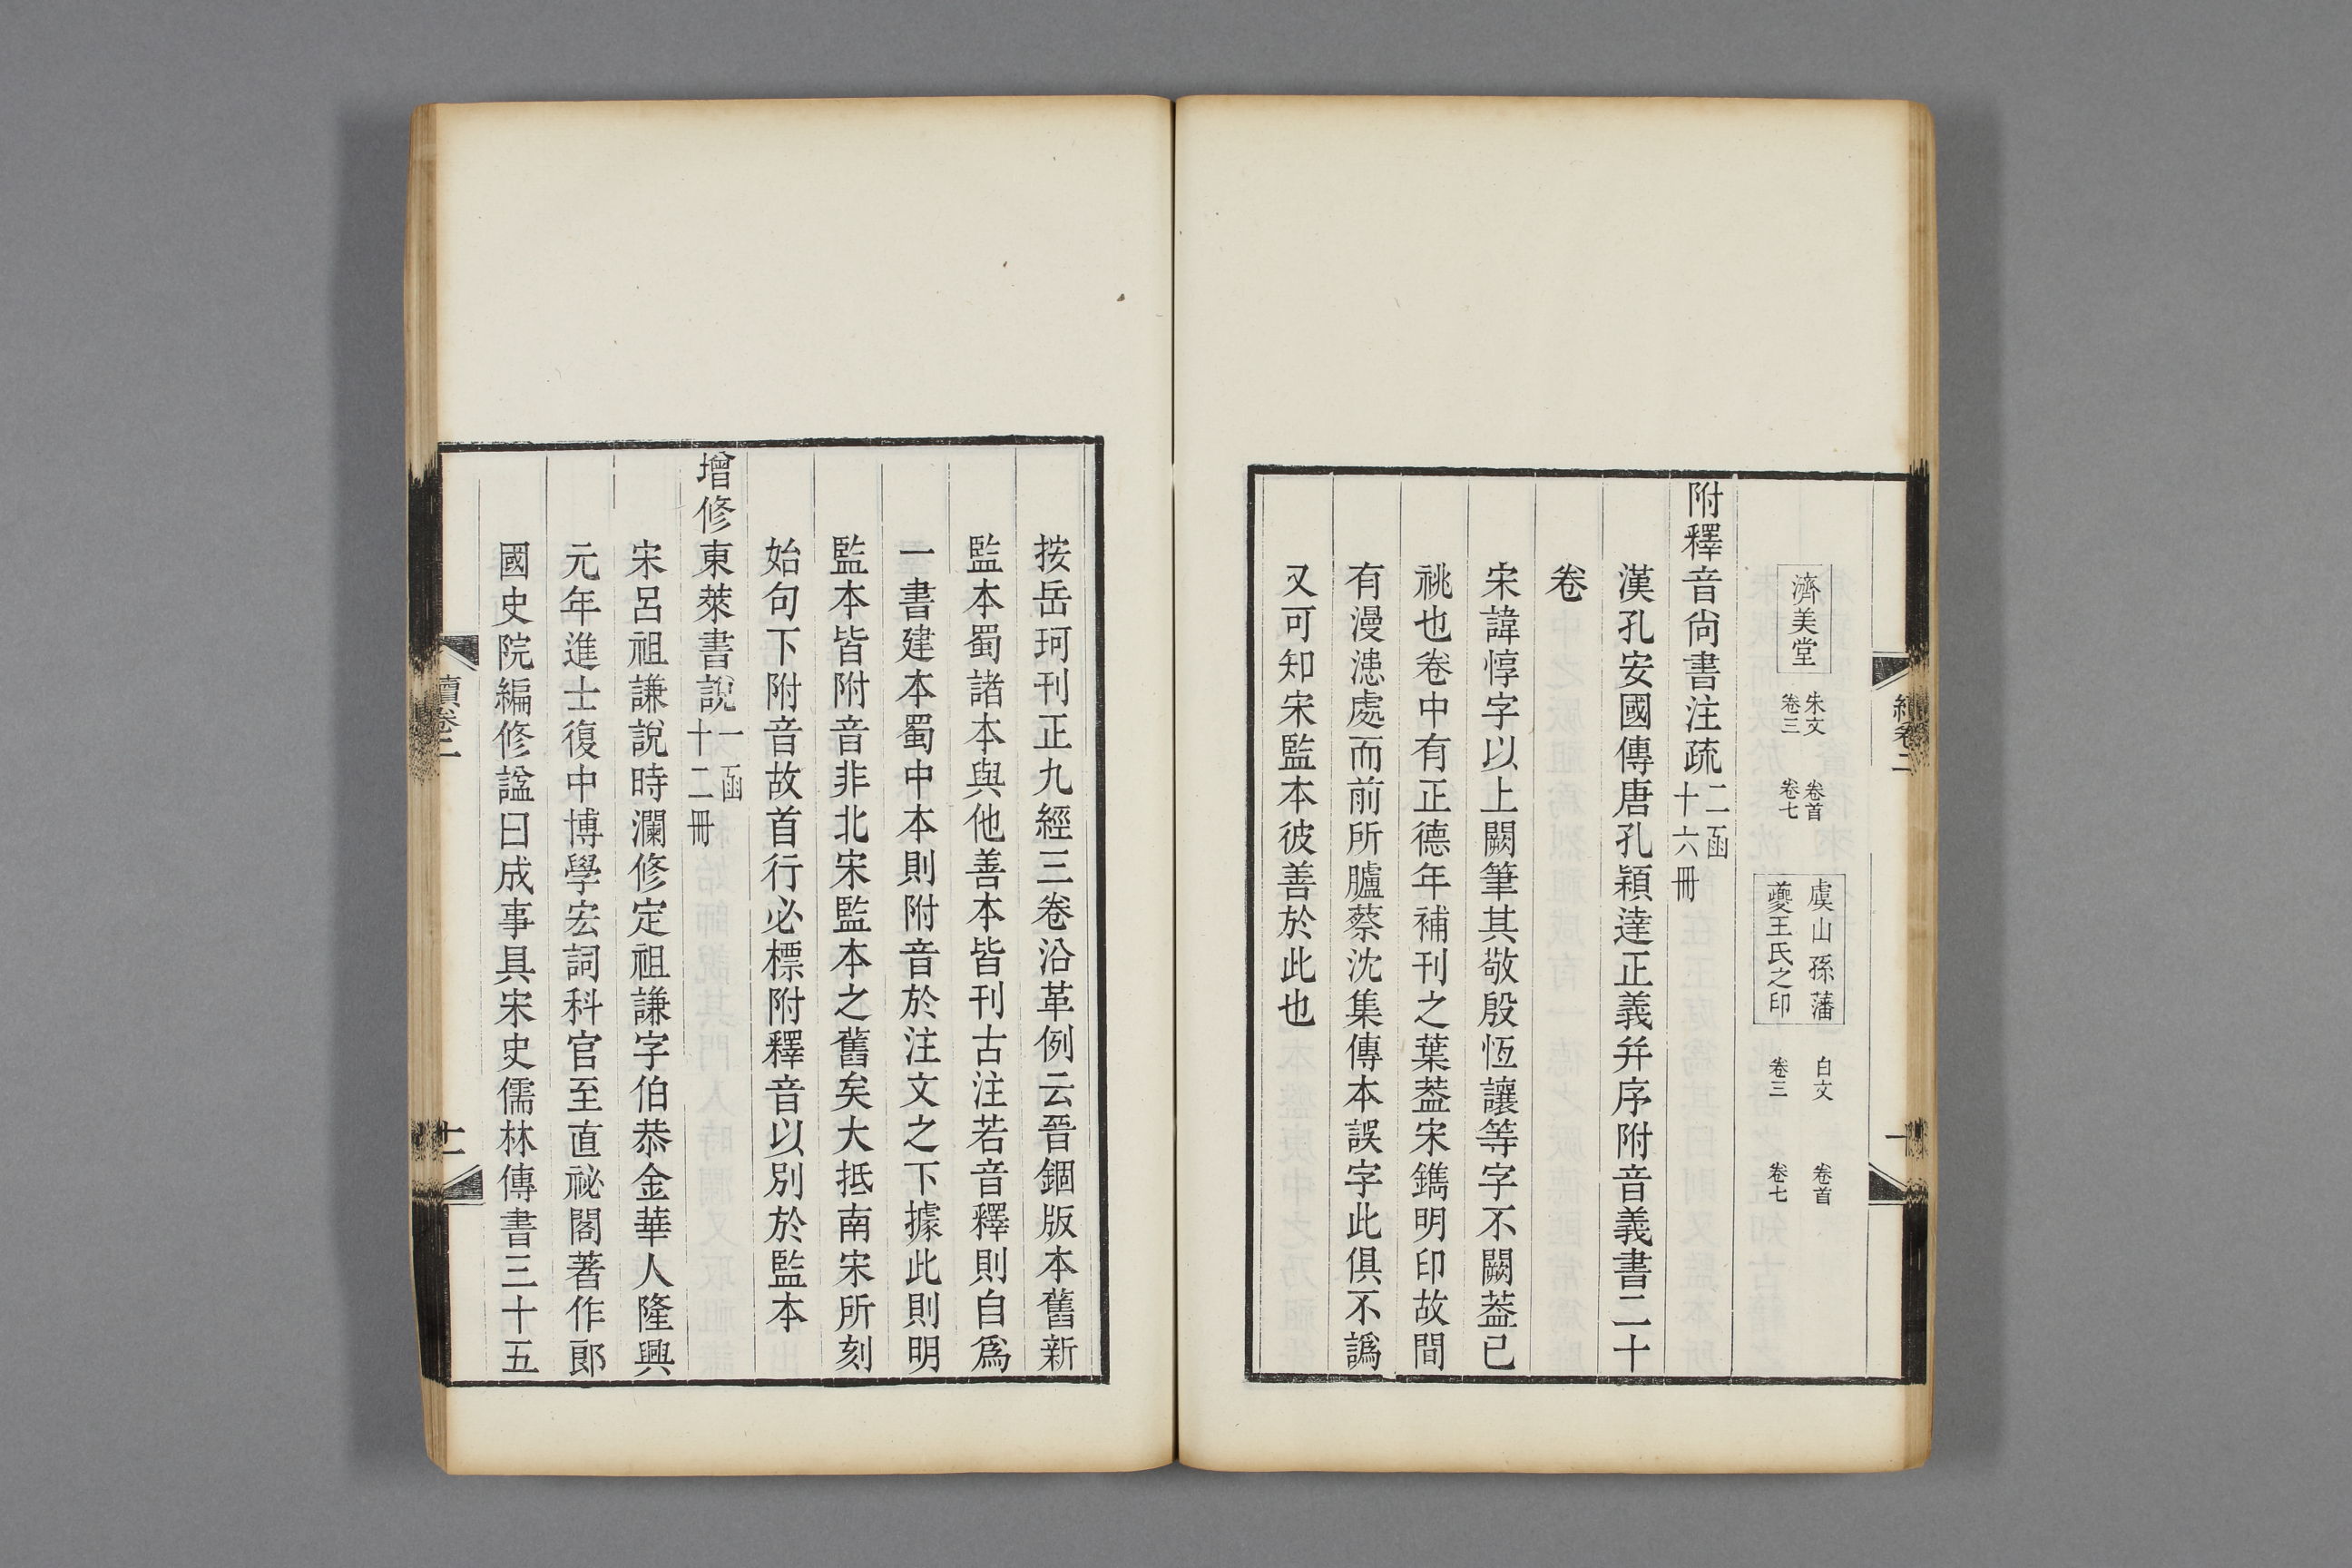 濟美堂
朱文
卷三
卷首
卷七
虞山孫藩
夔王氏之印
白文
卷三
卷首
卷七
附釋音尙書注疏二函
十六冊
漢孔安國傳唐孔穎達正義幷序附音義書二十
卷
宋諱惇字以上闕筆其敬殷恆讓等字不闕葢已
祧也卷中有正德年補刊之葉葢宋鐫明印故間
有漫漶處而前所臚蔡沈集傳本誤字此俱不譌
又可知宋監本彼善於此也
按岳珂刊正九經三卷沿革例云晉錮版本舊新
監本蜀諸本與他善本皆刊古注若音釋則自爲
一書建本蜀中本則附音於注文之下據此則明
監本皆附音非北宋監本之舊矣大抵南宋所刻
始句下附音故首行必標附釋音以別於監本
增修東萊書說一函
十二冊
宋呂祖謙說時瀾修定祖謙字伯恭金華人隆興
元年進士復中博學宏詞科官至直祕閣著作郎
國史院編修諡曰成事具宋史儒林傳書三十五
續卷二
十一